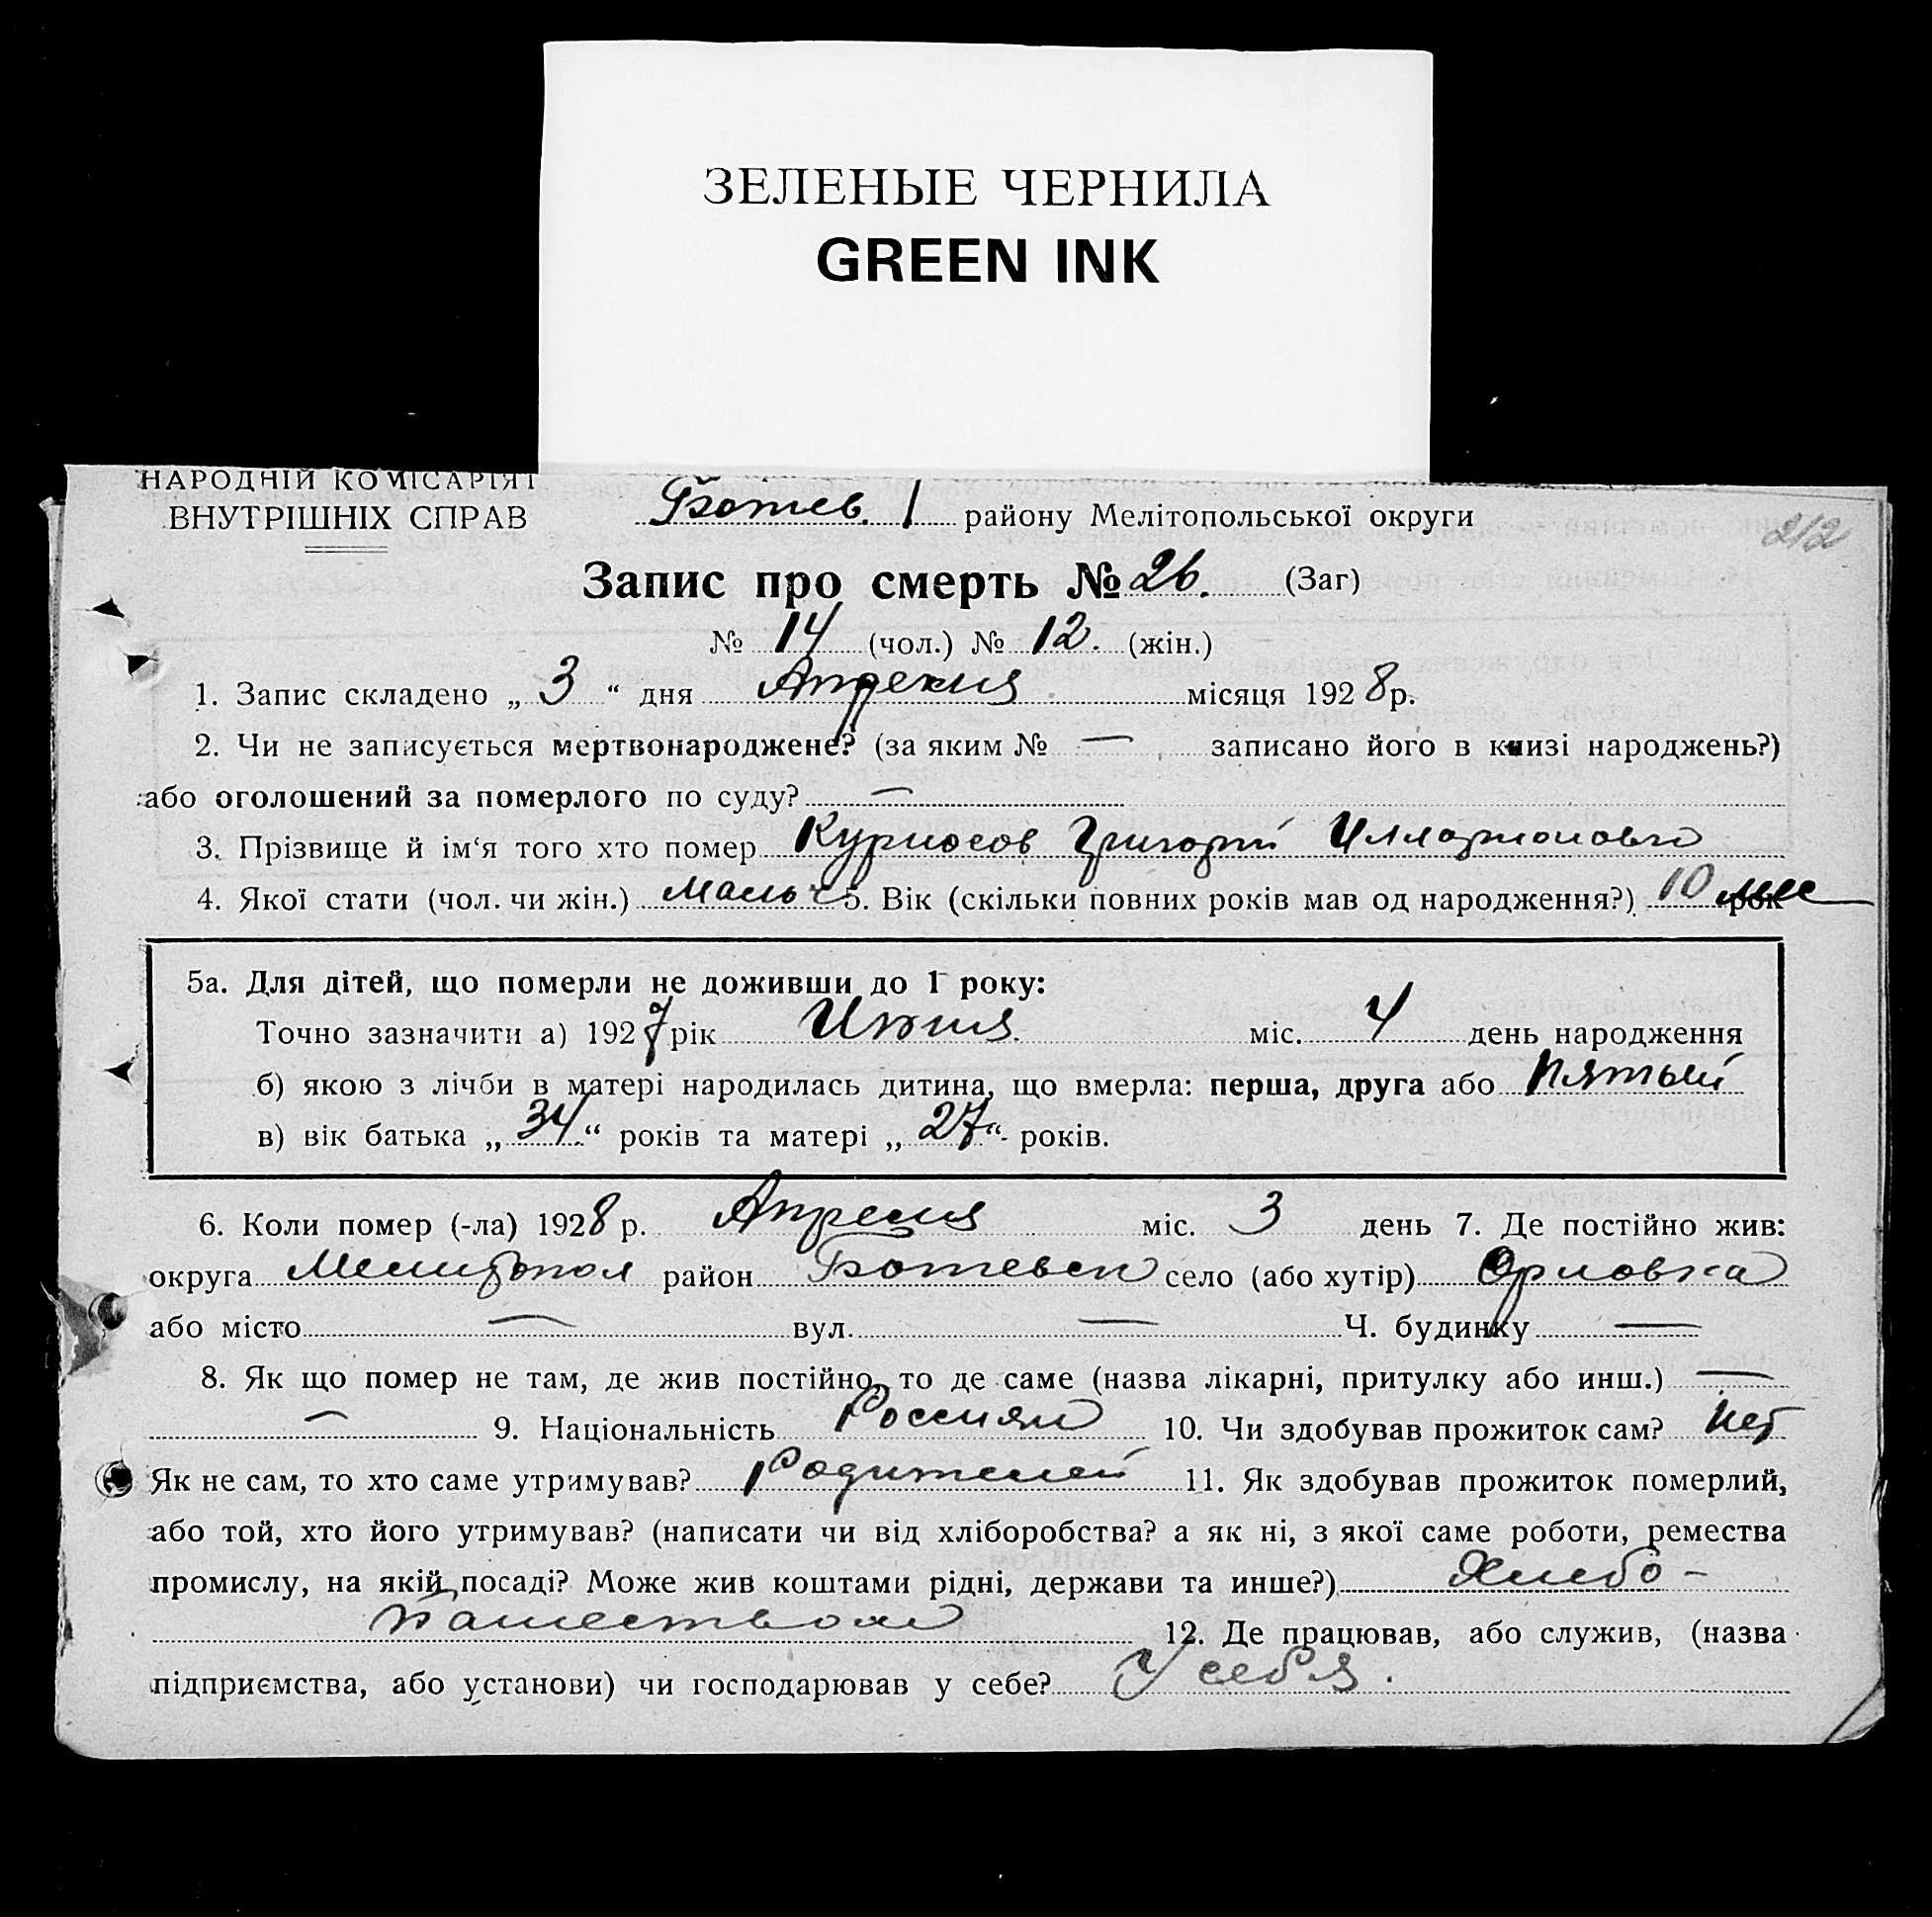 ЗЕЛЕНЫЕ ЧЕРНИЛА
GREEN INK
НАРОДНІЙ КОМІСАРІЯТ
ВНУТРІШНІХ СПРАВ
Ботев. району Мелітопольської округи
212
Запис про смерть № 26. (Заг)
№ 14 (чол.) № 12. (жін.)
1. Запис складено „ 3 “ дня Апреля місяця 1928 р.
2. Чи не записується мертвонароджене? (за яким № — записано його в книзі народжень?)
або оголошений за померлого по суду? —
3. Прізвище й ім‘я того хто помер Курносов Григорий Илларионови
4. Якої стати (чол. чи жін.) мальч 5. Вік (скільки повних років мав од народження?) 10 мес
5а. Для дітей, що померли не доживши до 1 року:
Точно зазначити а) 1927 рік Июня. міс. 4 день народження
б) якою з лічби в матері народилась дитина, що вмерла: перша, друга або пятый
в) вік батька „ 34 “ років та матері „ 27 “ років.
6. Коли помер (-ла) 1928 р. Апреля міс. 3 день 7. Де постійно жив:
округа Мелитопол район Ботевск село (або хутір) Орловка
або місто — вул. — Ч. будинку —
8. Як що помер не там, де жив постійно, то де саме (назва лікарні, притулку або инш.) —
— 9. Національність Россиян 10. Чи здобував прожиток сам? нет
Як не сам, то хто саме утримував? Родителей 11. Як здобував прожиток померлий,
або той, хто його утримував? (написати чи від хліборобства? а як ні, з якої саме роботи, ремества
промислу, на якій посаді? Може жив коштами рідні, держави та инше?) Хлебо-
пашеством 12. Де працював, або служив, (назва
підприємства, або установи) чи господарював у себе? У себя.